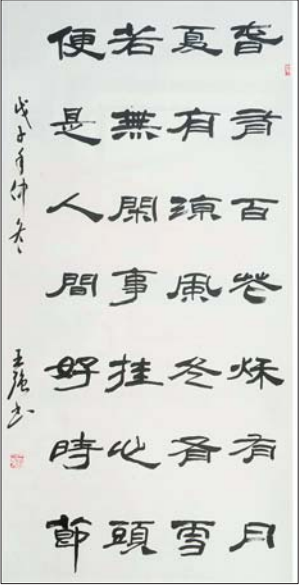 春有百花秋有月
夏有涼風冬有雪
若無閑事挂心頭
便是人間好時節
戊子年仲冬 王强书